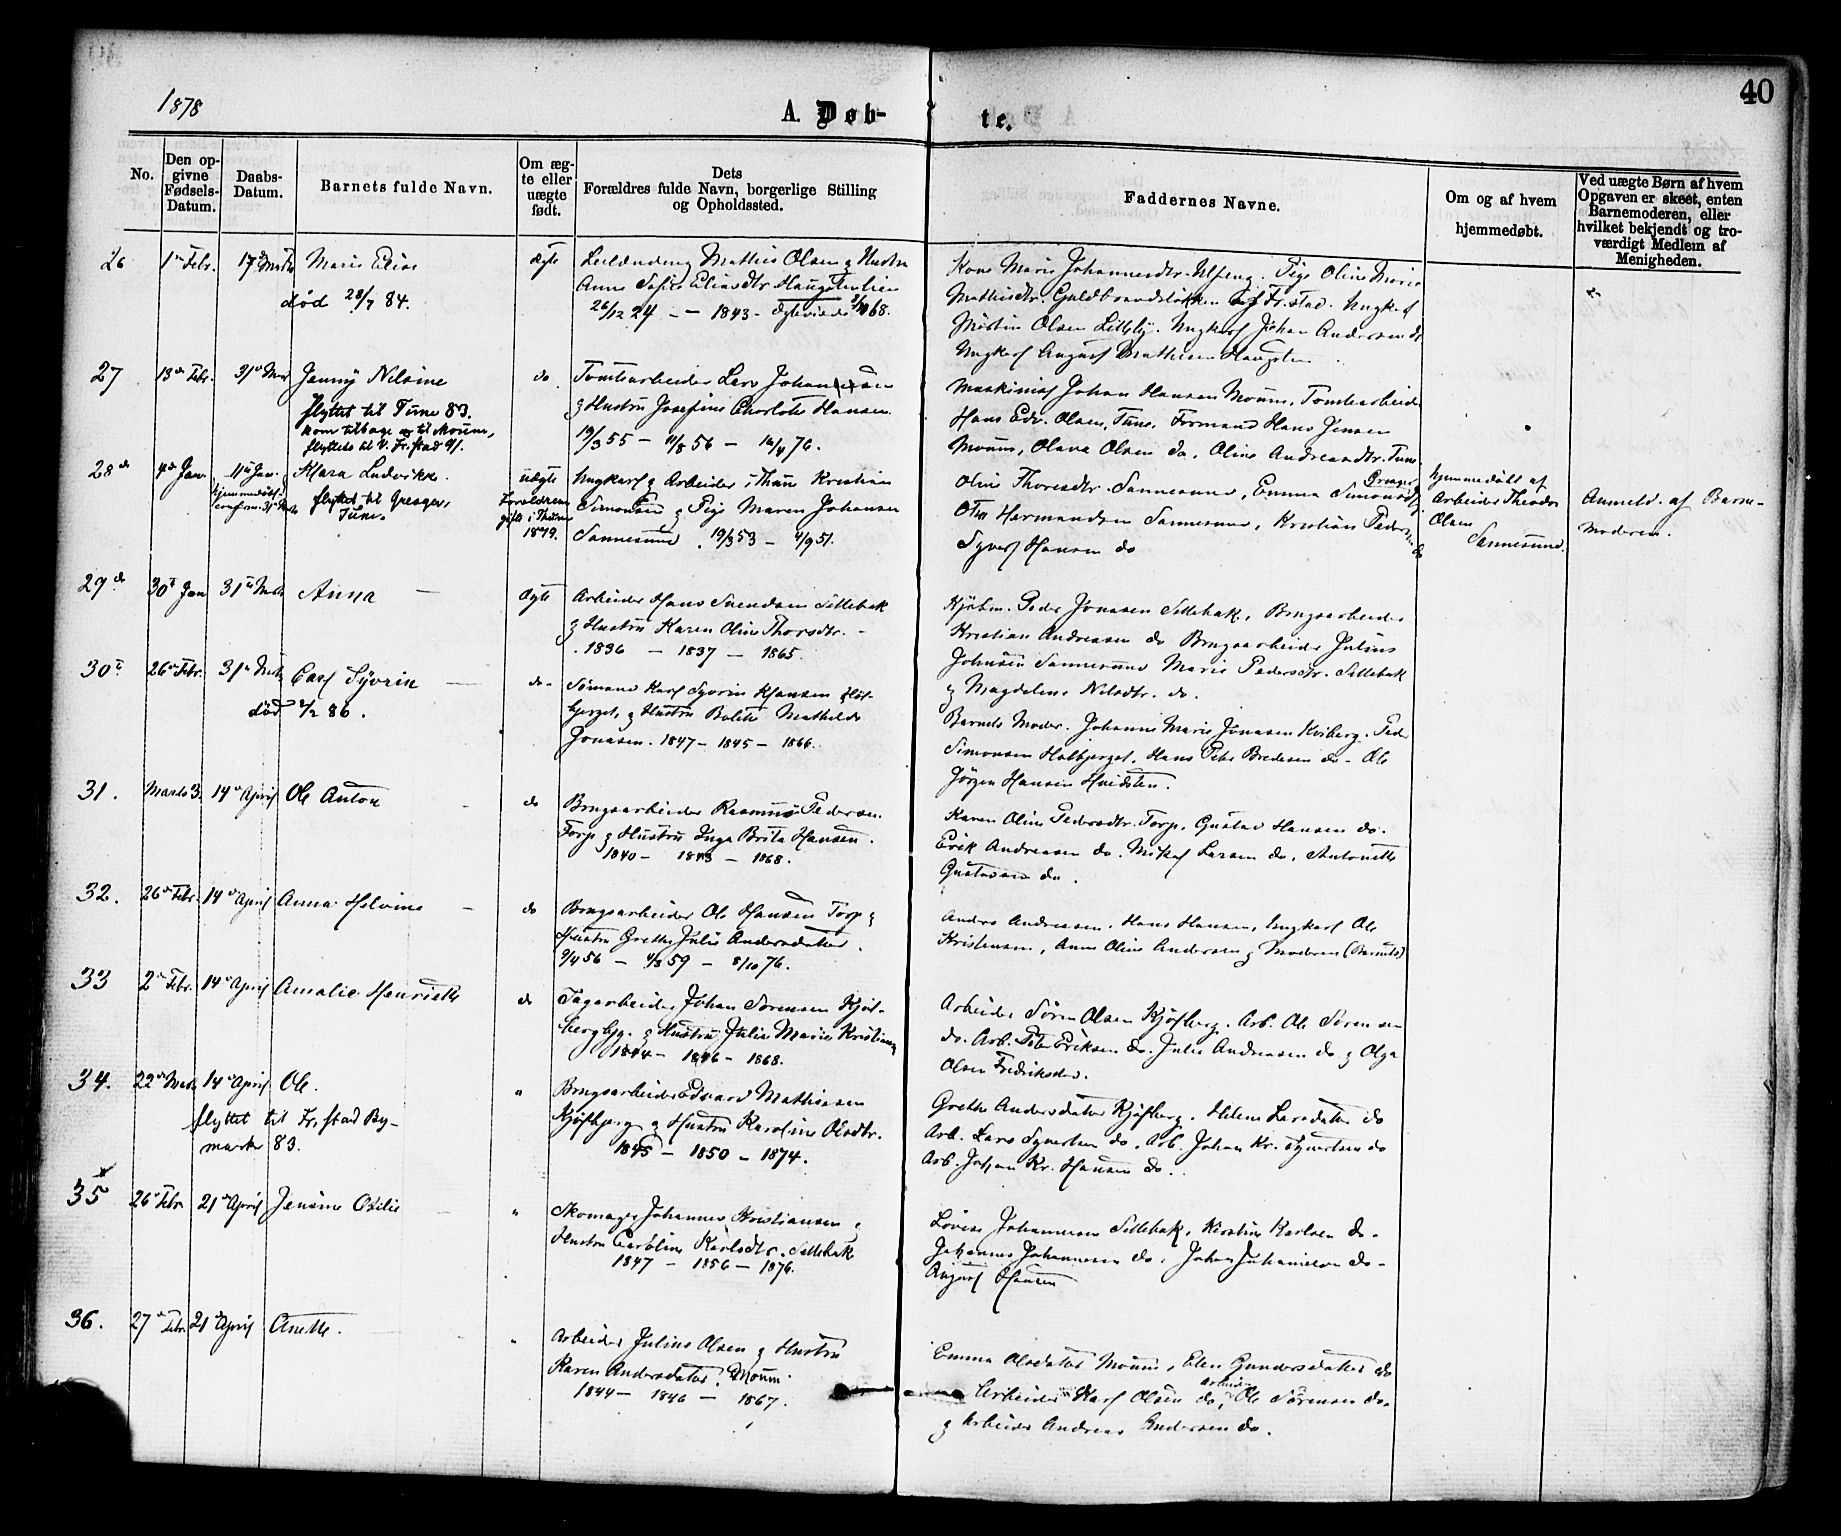 40
1878
A. Døb-te.
No.
Den opgivne Fødsels-Datum.
Daabs-Datum.
Barnets fulde Navn.
Om ægte eller uægte født.
Dets Forældres fulde Navn, borgerlige Stilling og Opholdssted.
Faddernes Navne.
Om og af hvem hjemmedøbt.
Ved uægte Børn af hvem Opgaven er skeet, enten Barnemoderen, eller hvilket bekjendt og troværdigt Medlem af Menigheden.
26 1 Febr. 17 Marts Marie Elise
død 28/7 84.
ægte
Mathis Olsen og Hustru
Anne Sofie Eliasdtr.
26/12 24 - 1843 -
Kone Marie Johannesdtr. Pige Oline Marie
Mathisdtr. Guldbrandsløkken Fr.stad. Ungkarl
Olsen Ungkarl Johan Andersen do
Ungkarl August Mathisen
27 13de Febr. 31 Mar Jenny Nilsine
flyttet til Tune 83.
kom tilbage og til Moum,
flyttede til V. Fr.stad 91.
do.
Tomtearbeider Lars Johansen
og Hustru Josefine Charlotte Hansen
19/3 55 - 11/8 56 -
Maskinist Johan Hansen Moum, Tomtearbeider
Hans Edv. Olsen, Tune, Formand Hans Jensen
Moum, Olava Olsen do, Oline Andreasdtr. Tune
28de 4de Jan 11te Jan. Klara Ludvikke.
flyttet til Greager,
Tune.
uægte
Forældrene
gift i Thune
1879.
Ungkarl og Arbeider i Thune Kristian
Simonsen og Pige Maren Johansen
Sannesund. 19/3 53 - 4/9 51.
Oline Thoresdtr. Sannesund, Emma Simonsdtr.
Hermansen Sannesund, Kristian Pedersen do
Syvert Hansen do
hjemmedøbt af
Arbeider Theodor
Olsen
Sannesund.
Anmeld. af Barne-
moderen.
29de 30te Jan 31te Marts Anna
ægte
Arbeider Hans Svendsen Sellebak
og Hustru Karen Oline Thorsdtr.
1836 - 1837 - 1865.
Kjøbm. Peder Jonasen Sellebak, Brugsarbeider
Kristian Andreasen do Brugsarbeider Julius
Johnsen Sannesund Marie Pedersdtr. Sellebak
og Magdalene Nilsdtr. do.
30te 26de Febr. 31te Marts Carl Syvrin
død 2/2 86.
do
Sømand Karl Syvrin Hansen
og Hustru Bolette Mathilde
Jonasen. 1847 - 1845 - 1866.
Barnets Moder. Johanne Marie Jonasen Kviberg. Peder
Simonsen Holbjerget, Hans Peter Bredesen do - Ole
Jørgen Hansen Hvidsten.
31. Marts 3. 14de April Ole Anton
do
Brugsarbeider Rasmus Pedersen
Torp og Hustru Inga Brita Hansen.
1840 - 1843 - 1868.
Karen Oline Pedersdtr. Torp, Gustav Hansen do.
Erik Andreasen do. Mikal Larsen do. Antonette
Gustavsen do.
32. 26de Febr. 14de April Anna Helvine
do
Brugsarbeider Ole Hansen Torp og
Hustru Grethe Julie Andersdatter.
9/4 56 - 4/3 59 - 8/10 76.
Anders Andreasen, Hans Hansen, Ungkarl Ole
Kristensen, Anne Oline Andersen og Moderen (Barnets)
33 2de Febr. 14de April Amalie Henriette
do
Dagarbeider Johan Sørensen Kjøl-
bergbg. og Hustru Julie Marie Kristians
1844 - 1846 - 1868.
Arbeider Søren Olsen Kjølberg. Arb. Ole Sørensen
do. Arb. Peter Eriksen do. Julie Andreasen do og Olga
Olsen Fredriksstad.
34. 22de Marts 14de April Ole.
flyttet til Fr.stad By-
mark 83.
"
Brugsarbeider Edvard Mathiasen
Kjølbjerg og Hustru Karoline Olsdtr.
1845 - 1850 - 1874.
Grethe Andersdatter Kjølberg. Helene Larsdatter do
Arb. Lars Syvertsen do. Arb. Johan Kr. Syvertsen do
Arb. Johan Kr. Hansen do.
35 26de Febr 21de April Jensine Otilie
"
Skomager Johannes Kristiansen og
Hustru Caroline Karlsdtr. Sellebak
1847 - 1856 - 1876.
Lovise Johannesen Sellebak, Kirstine Karlsen do.
Johannes Johannesen do, Johan Johannesen do
August Hansen
36. 27de Febr. 21de April Anette.
"
Arbeider Julius Olsen og Hustru
Karen Andersdatter. Moum.
1844 - 1846 - 1867.
Emma Olsdatter Moum, Elen Gundersdatter do
Arbeider Karl Olsen do, arbeider Ole Sørensen do.
og Arbeider Andreas Andersen do.